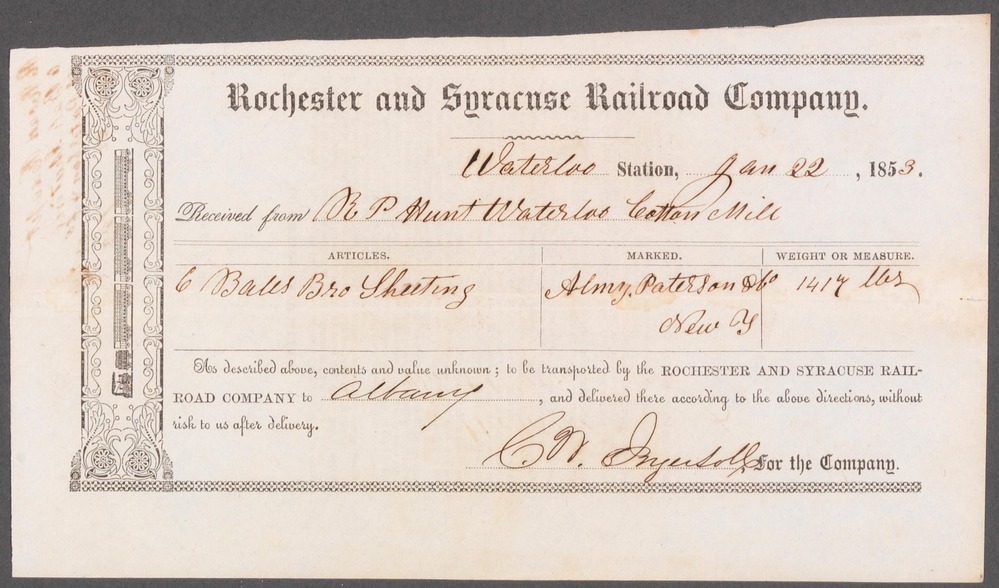 Rochester and Syracuse Railroad Company.
Waterloo Station, Jan 22, 1853.
Received from R P Hunt Waterloo Cotton Mill
ARTICLES. MARKED. WEIGHT OR MEASURE.
6 Bales Bro Sheeting Almy, Paterson & Co 1417 lbs
New Y
As described above, contents and value unknown; to be transported by the ROCHESTER AND SYRACUSE RAIL-
ROAD COMPANY to Albany, and delivered there according to the above directions, without
risk to us after delivery.
C W. Ingersoll, For the Company.